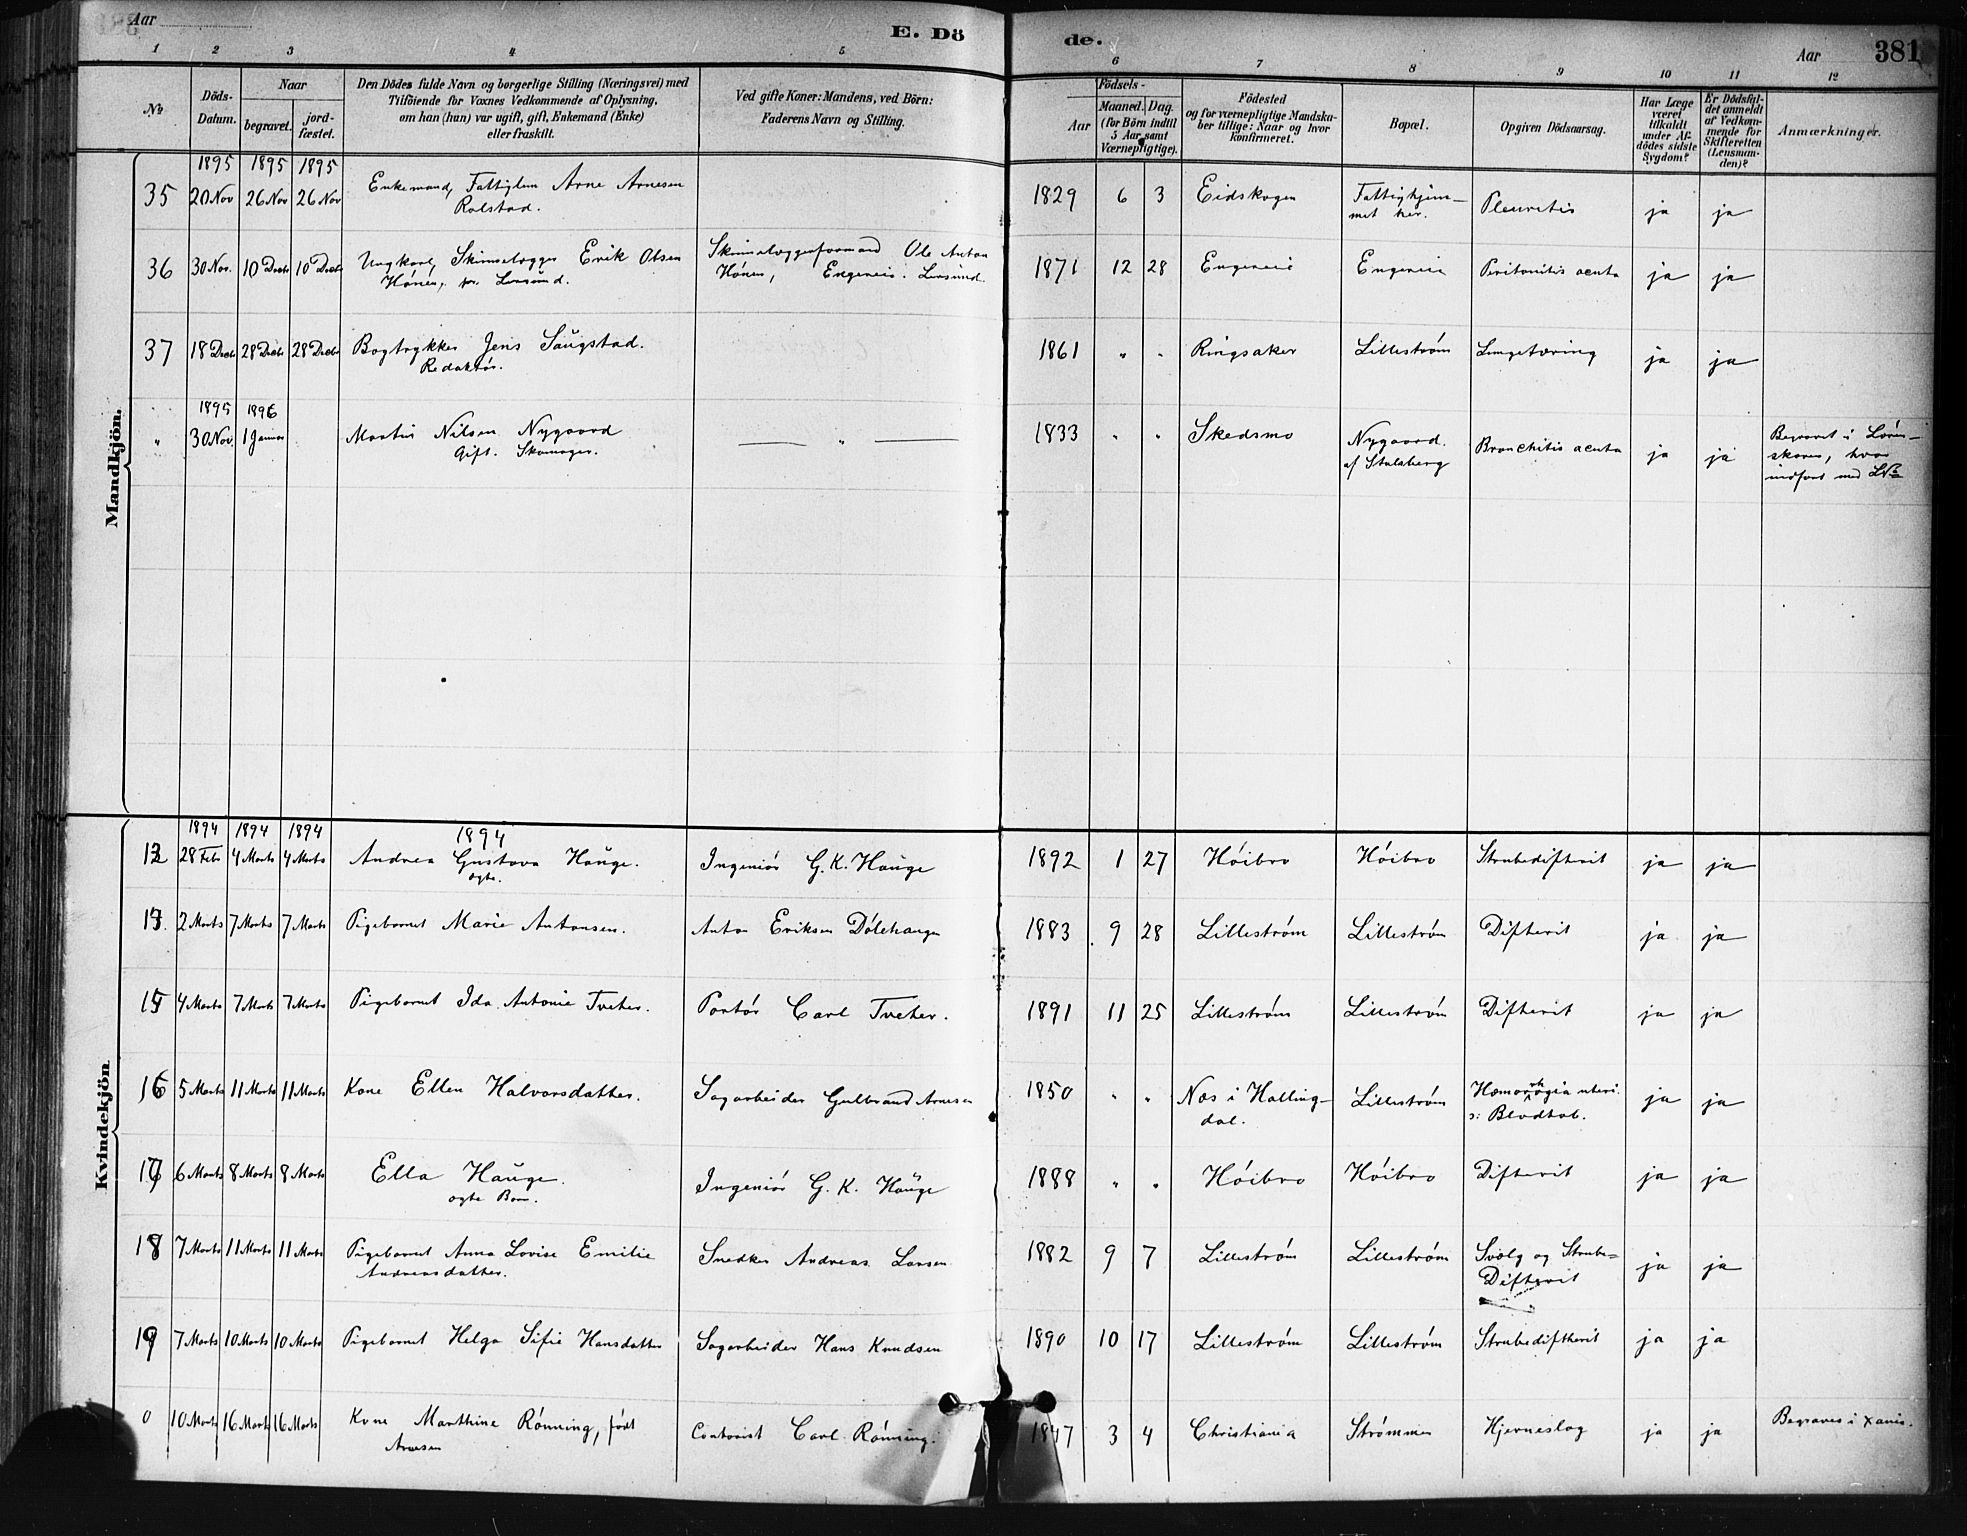 Aar
E. Dö de.
Aar
381
1 2 3 4 5 6 7 8 9 10 11 12
№
Döds-Datum.
Naar
begravet.
jord-fæstet.
Den Dödes fulde Navn og borgerlige Stilling (Næringsvei) med
Tilföiende for Voxnes Vedkommende af Oplysning,
om han (hun) var ugift, gift, Enkemand (Enke)
eller fraskilt.
Ved gifte Koner: Mandens, ved Börn:
Faderens Navn og Stilling.
Födsels-
Aar
Maaned. Dag.
(for Börn indtil
5 Aar samt
Værnepligtige).
Födested
og for værnepligtige Mandska-
ber tillige: Naar og hvor
konfirmeret.
Bopæl.
Opgiven Dödsaarsag.
Har Læge
været
tilkaldt
under Af-
dödes sidste
Sygdom?
Er Dödsfal-
det anmeldt
af Vedkom-
mende for
Skifteretten
(Lensman-
den)?
Anmærkninger.
Mandkjön.
1895 1895 1895
35 20 Nov 26 Nov 26 Nov Enkemand, Fattiglem Arne Arnesen 1829 6 3 Eidskogen Fattighjem- Pleuritis ja ja
Rolstad. met her.
36 30 Nov. 10 Decbr 10 Decbr Ungkarl, Skinnelægger Erik Olsen Skinnelæggerformand Ole Anton 1871 12 28 Engeneie Engeneie Peritonitis acuta ja ja
Hónen, pr. Lersund. Hónen, Engeneie. Lersund.
37 18 Decbr 28 Decbr 28 Decbr Bogtrykker Jens Saugstad. 1861 " " Ringsaker Lillestrøm Lungetæring ja ja
Redaktør.
1895 1896
" 30 Nov. 1 Januar Martin Nilsen Nygaard — " — 1833 " " Skedsmo Nygaard. Bronchitis acuta ja ja Begravet i Lóren-
Gift. Skomager. af Stalsberg skoven, hvor
indført med L№
Kvindekjön
1894 1894 1894 1894
13 28 Feb 4 Marts 4 Marts Andrea Gustava Hauge. Ingeniør G. K. Hauge 1892 1 27 Høibro Høibro Strubedifterit ja ja
ægte.
2 Marts 7 Marts 7 Marts Pigebarnet Marie Antonsen. Anton Eriksen Dólehaugen 1883 9 28 Lillestrøm Lillestrøm Difterit ja ja
15 4 Marts 7 Marts 7 Marts Pigebarnet Ida Antonie Tveter. Portør Carl Tveter. 1891 11 25 Lillestrøm Lillestrøm Difterit ja ja
16 5 Marts 11 Marts 11 Marts Kone Ellen Halvorsdatter. Sagarbeider Gulbrand Arnesen 1850 " " Næs i Halling- Lillestrøm Hæmorrhagia uteri. ja ja
dal. ɔ: Blodtab.
17 6 Marts 8 Marts 8 Marts Ella Hauge. Ingeniør G. K. Hauge 1888 " " Høibro Høibro Difterit ja ja
ægte Barn.
18 7 Marts 11 Marts 11 Marts Pigebarnet Anna Lovise Emilie Snedker Andreas Larsen 1882 9 7 Lillestrøm Lillestrøm Svælg og Strube= ja ja
Andreasdatter. Difterit
19 7 Marts 10 Marts 10 Marts Pigebarnet Helga Sifie Hansdatter Sagarbeider Hans Knudsen 1890 10 17 Lillestrøm Lillestrøm Strubediftherit ja ja
0 10 Marts 16 Marts 16 Marts Kone Marthine Rønning, født Contorist Carl Rønning. 1847 3 4 Christiania Strømmen Hjerneslag ja ja Begraves i Xania.
Arnesen